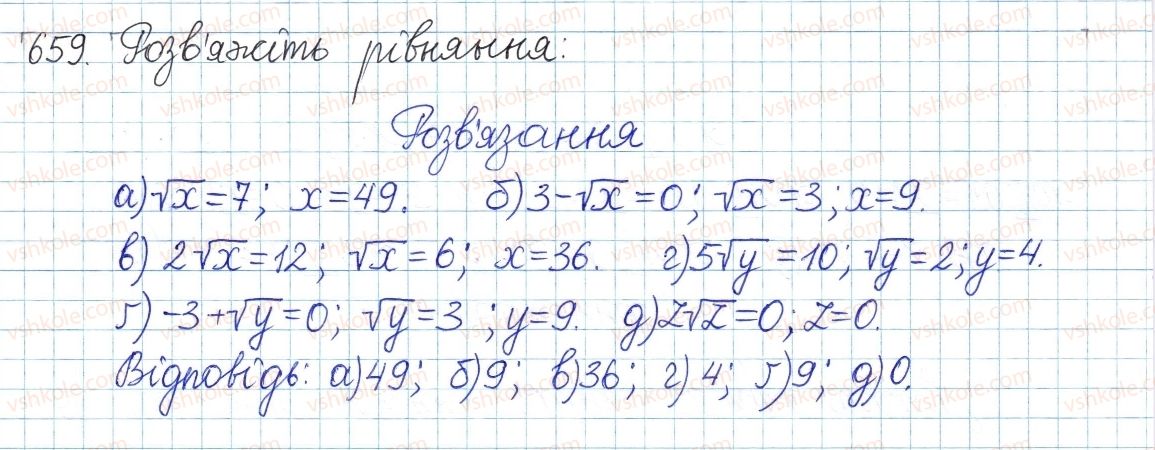 659. Розв'яжіть рівняння:
Розв'язання
а) √x = 7; x = 49. б) 3 - √x = 0; √x = 3; x = 9.
в) 2√x = 12; √x = 6; x = 36. г) 5√y = 10; √y = 2; y = 4.
ґ) -3 + √y = 0; √y = 3; y = 9. д) z√z = 0; z = 0.
Відповідь: а) 49; б) 9; в) 36; г) 4; ґ) 9; д) 0.